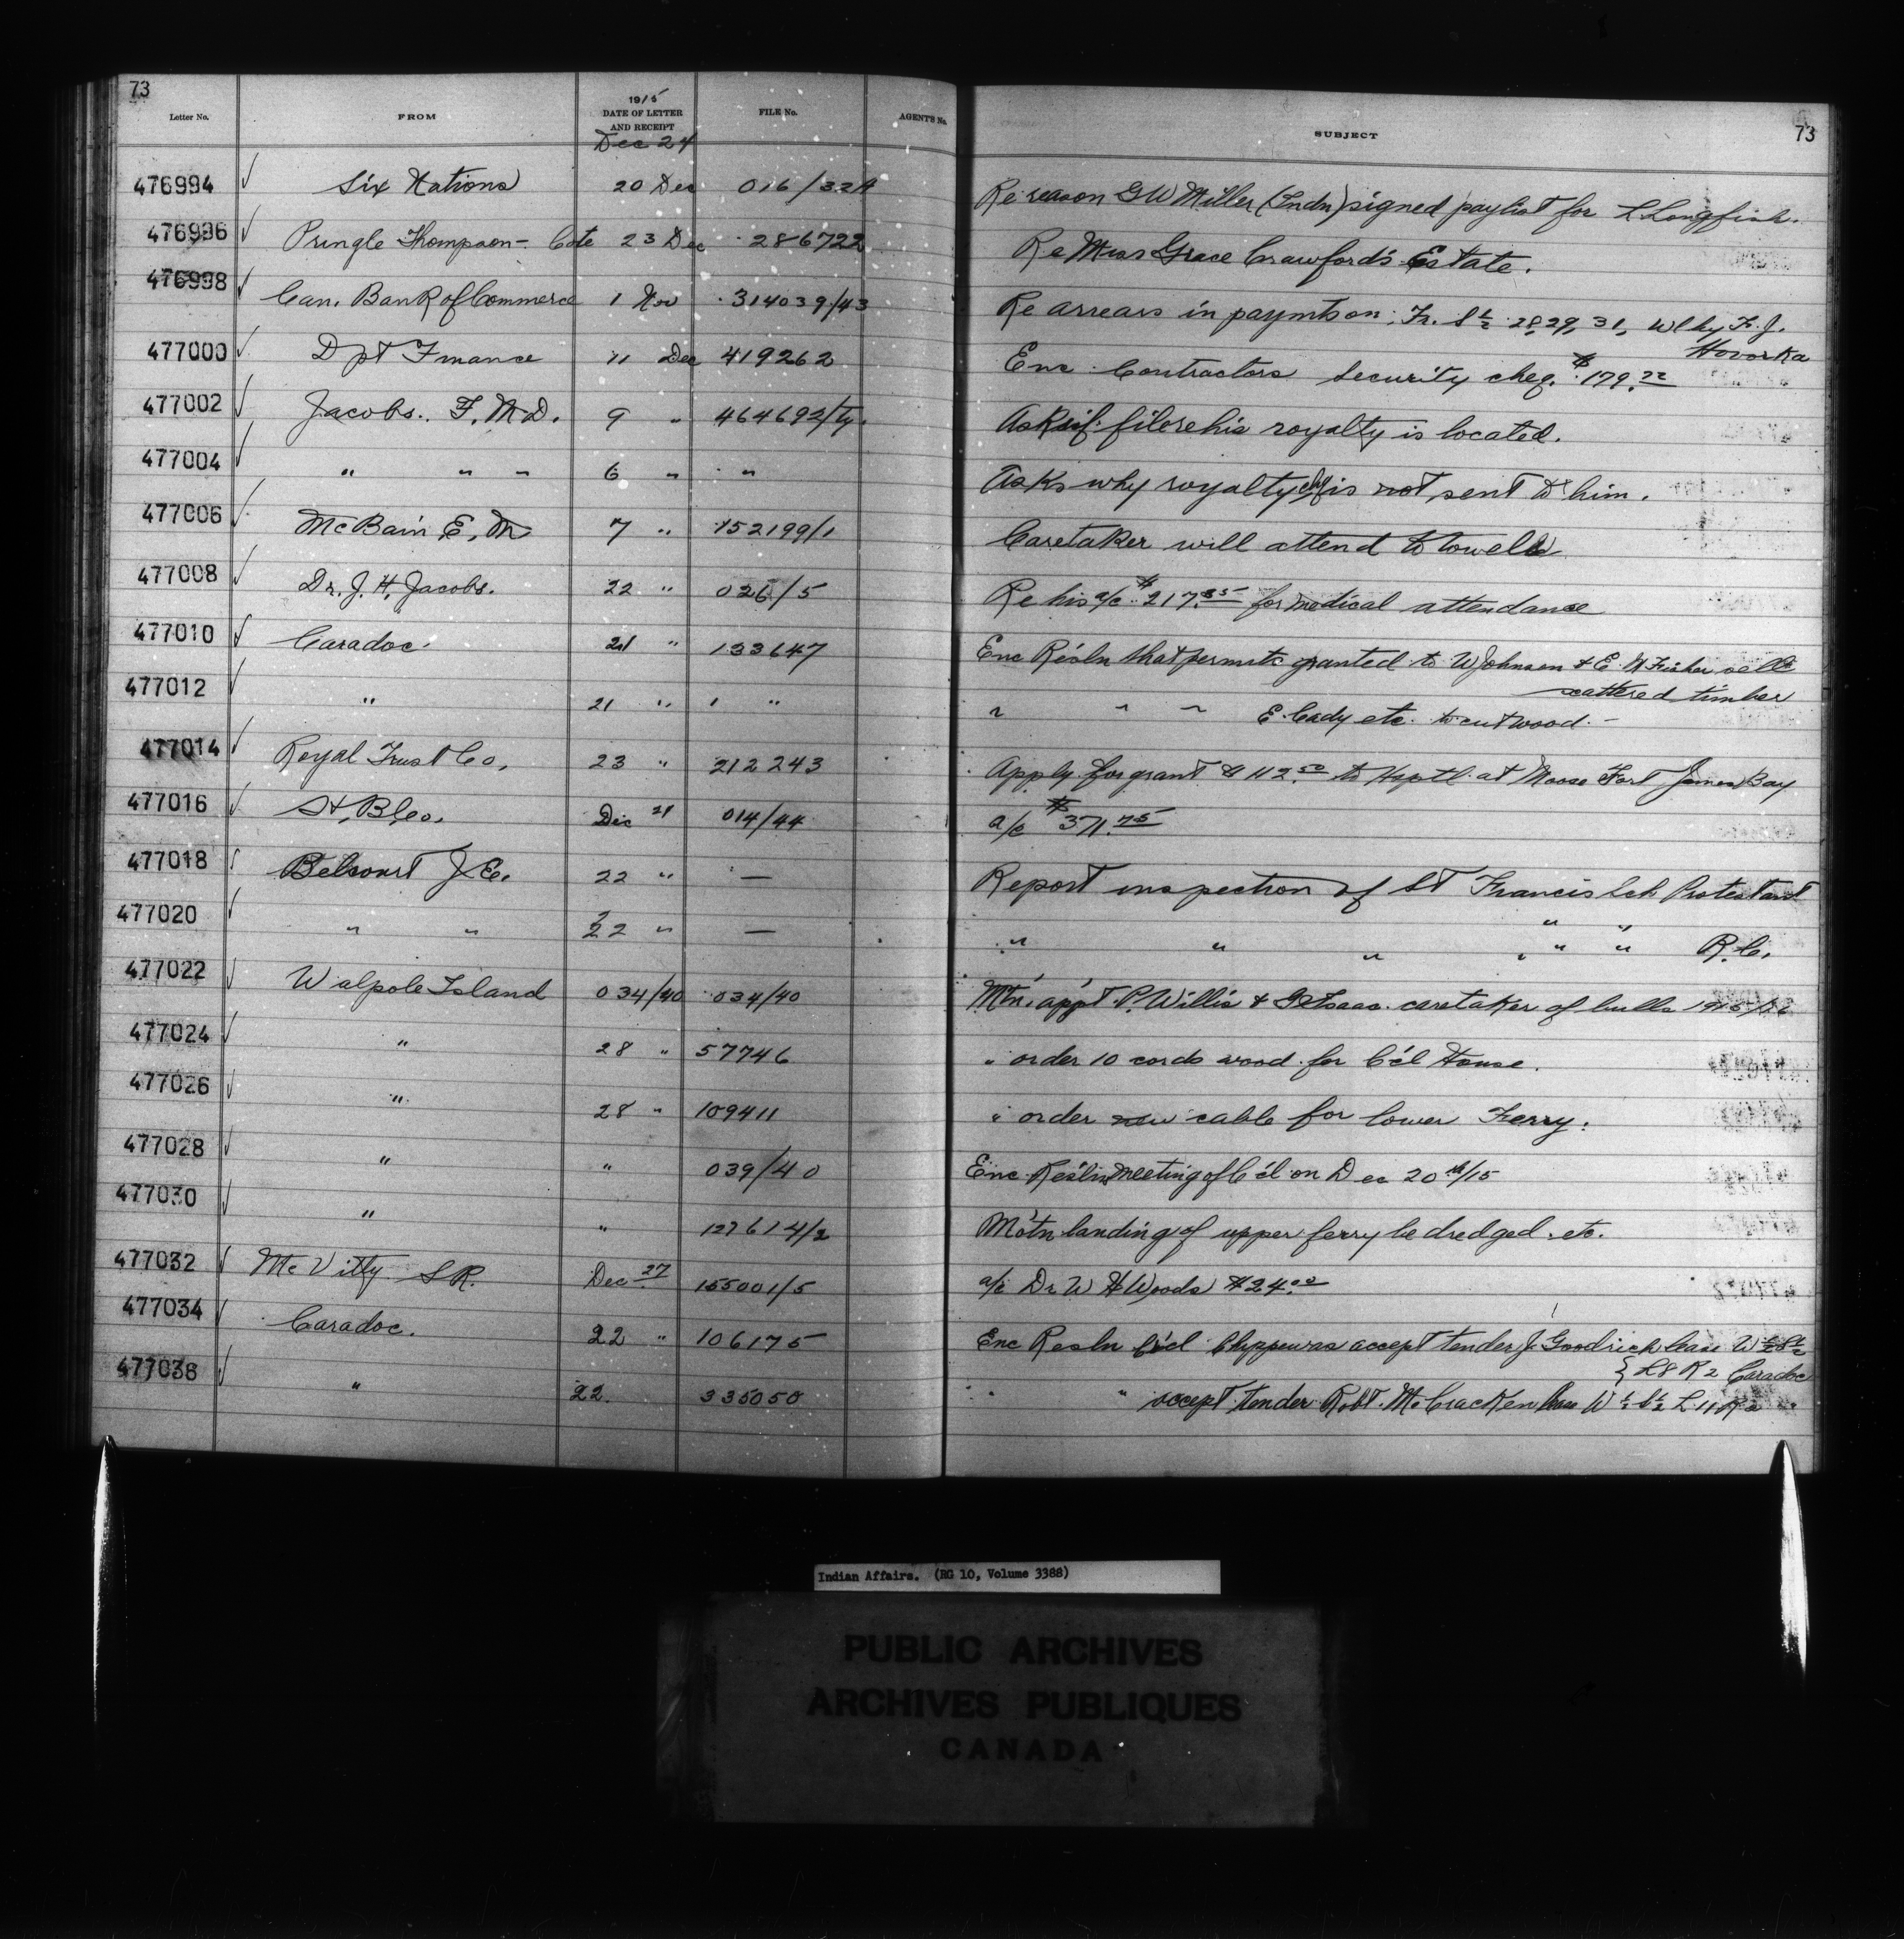 73
Letter No. FROM 1915 DATE OF LETTER AND RECEIPT FILE No. AGENT'S No. SUBJECT 73
Dec 24
476994 Six Nations 20 Dec 016/32A Re reason G W Miller (Indn) signed paylist for L Longfish.
476996 Pringle Thompson - Cote 23 Dec 286722 Re Miss Grace Crawford's Estate.
476998 Can. Bank of Commerce 1 Nov 314039/43 Re arrears in paymts on Fr. S½ 28, 29, 31, Wlky F. J.
Hovorka
477000 Dpt Finance 11 Dec 419262 Enc Contractors security cheq. $179.22
477002 Jacobs. F. M.D. 9 " 464692/ Asks if file re his royalty is located.
477004 " " " 6 " " Asks why royalty chq is not sent to him.
477006 McBain E. M 7 " 152199/1 Caretaker will attend to towels
477008 Dr. J. H. Jacobs. 22 " 026/5 Re his a/c $217.85 for medical attendance
477010 Caradoc. 21 " 133647 Enc Resln that permits granted to W Johnson & E. N Fisher sell
scattered timber
477012 " 21 " " " " " E. Cady etc. to cut wood. -
477014 Royal Trust Co. 23 " 212243 Apply for grant $112.50 to Hsptl at Moose Fort James Bay
477016 St, B, Co. Dec 21 014/44 a/c $371.75
477018 Belcourt J. E. 22 " — Report inspection of St Francis Sch Protestant
477020 " " 22 " — " " " " " R. C.
477022 Walpole Island 034/40 034/40 Mtn. app't P. Willis & Isaac caretaker of bulls
477024 " 28 " 57746 " order 10 cords wood for C'cl House.
477026 " 28 " 109411 " order new cable for lower Ferry.
477028 " " 039/40 Enc Res'ln meeting of C'cl on Dec 20th/15
477030 " " 127614/2 Mo'tn landing of upper ferry be dredged. etc.
477032 McVitty S R. Dec 27 155001/5 a/c Dr W H Woods $24.00
477034 Caradoc. 22 " 106175 Enc Resln C'cl Chippewas accept tender J. Goodrich lease W½ S½
{ L8 R 2 Caradoc
477036 " 22. 335050 " " accept tender Robt. McCracken lease W½ S½ L 11 R 2 "
Indian Affairs. (RG 10, Volume 3388)
PUBLIC ARCHIVES
ARCHIVES PUBLIQUES
CANADA